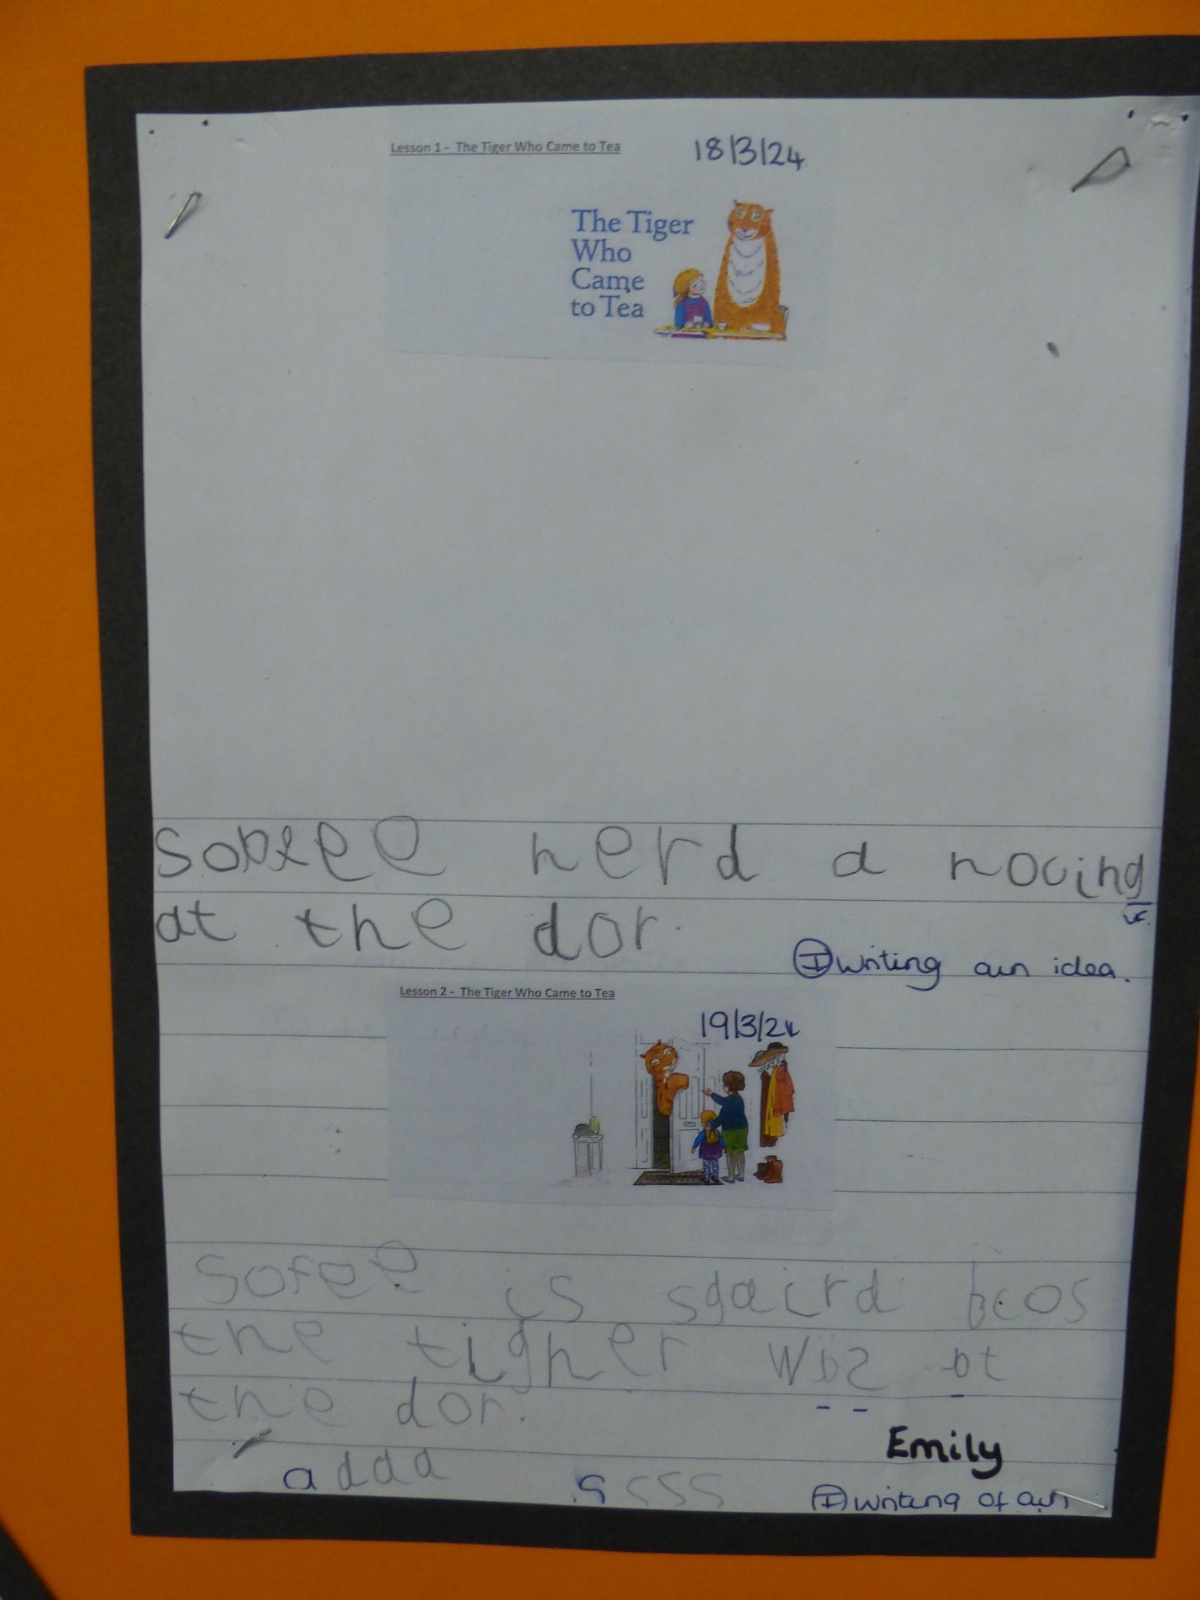 Lesson 1 - The Tiger Who Came to Tea
18/3/24
The Tiger
Who
Came
to Tea
herd a nocing
at the dor.
I writing own idea.
Lesson 2 - The Tiger Who Came to Tea
19/3/24
Sofee is sgaird bcos
the tigher wbs bt
the dor.
Emily
a d a a
s s s s
I writing of own